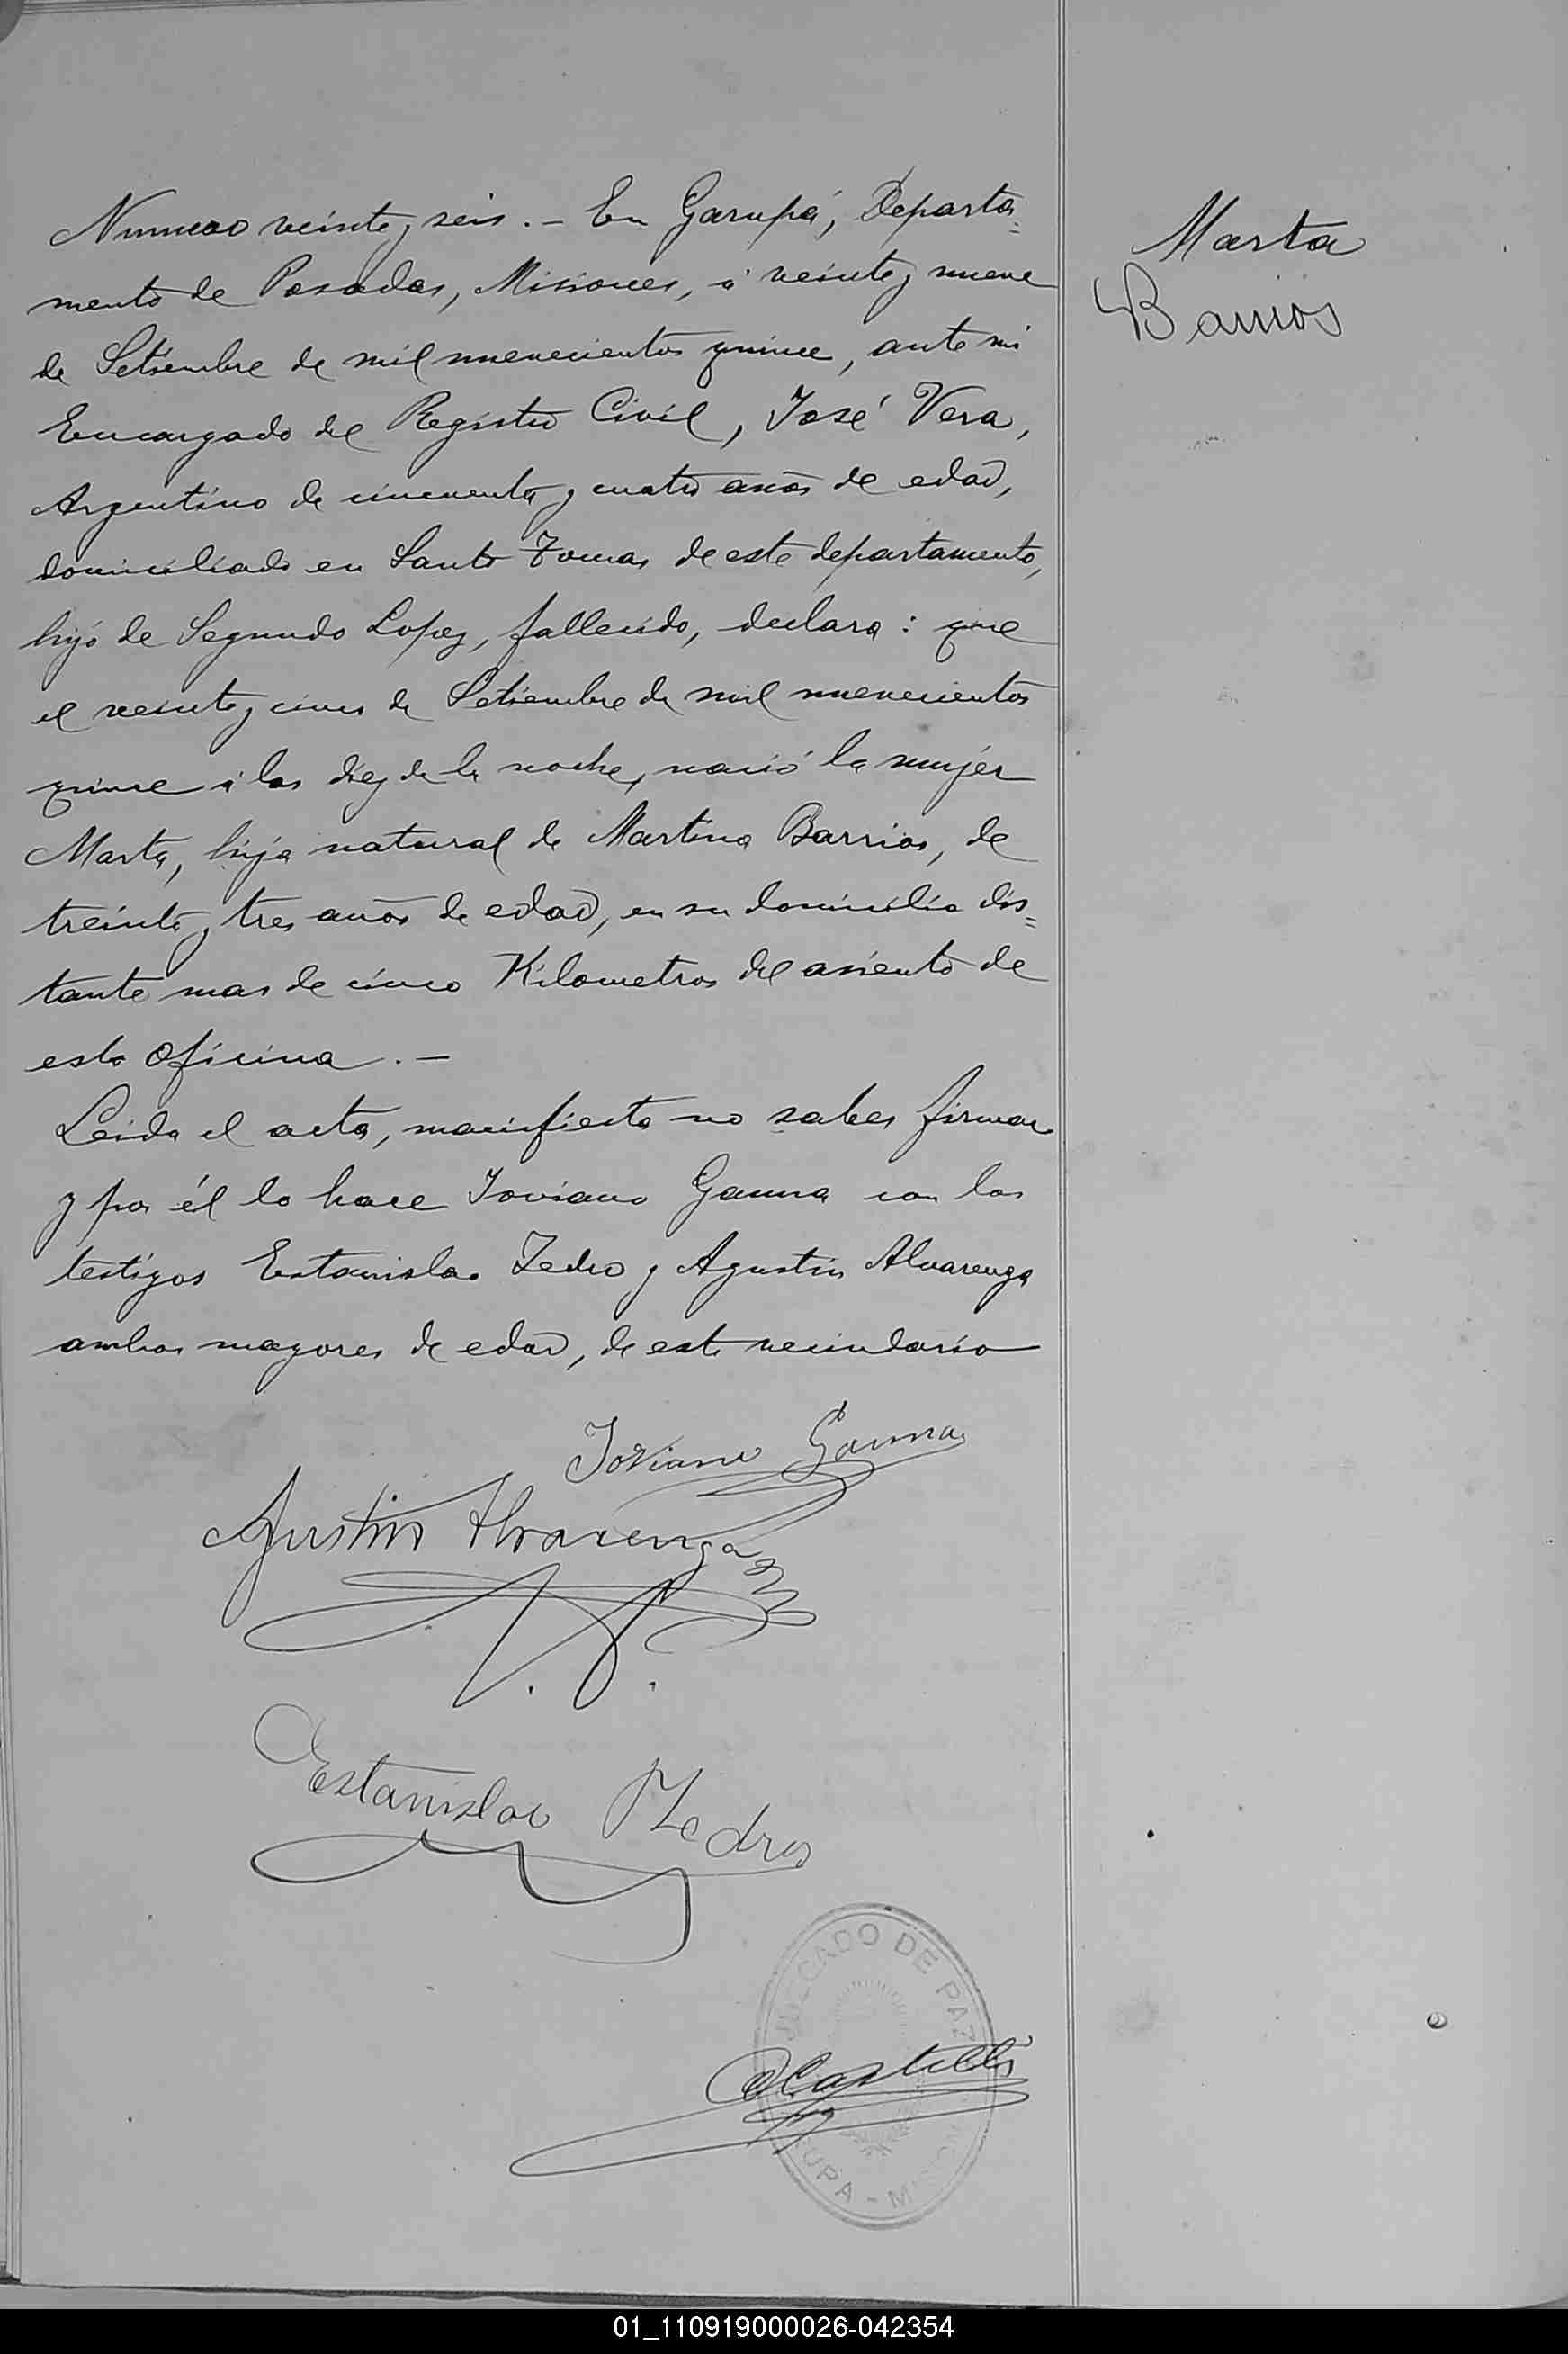 Numero veinte y seis. - En Garupá, Departa=
mento de Posadas, Misiones, á veinte y nueve
de Setiembre de mil nuevecientos quince, ante mi
Encargado del Registro Civil, José Vera,
Argentino de cincuenta y cuatro años de edad,
domiciliado en Santo Tomas de este departamento,
hijo de Segundo Lopez, fallecido, declara: que
el veinte y cinco de Setiembre de mil nuevecientos
quince á las diez de la noche, nació la mujer
Marta, hija natural de Martina Barrios, de
treinta y tres años de edad, en su domicilio dis=
tante mas de cinco Kilometros del asiento de
esta Oficina. -
Leida el acta, manifiesta no saber firmar
y por él lo hace Joviano Gauna con los
testigos Estanislao Ledro y Agustin Alvarenga
ambos mayores de edad, de este vecindario
Joviano Gauna
Agustin Alvarenga
Estanislao
JUZGADO DE PAZ
Castillo
Marta
Barrios
01_110919000026-042354